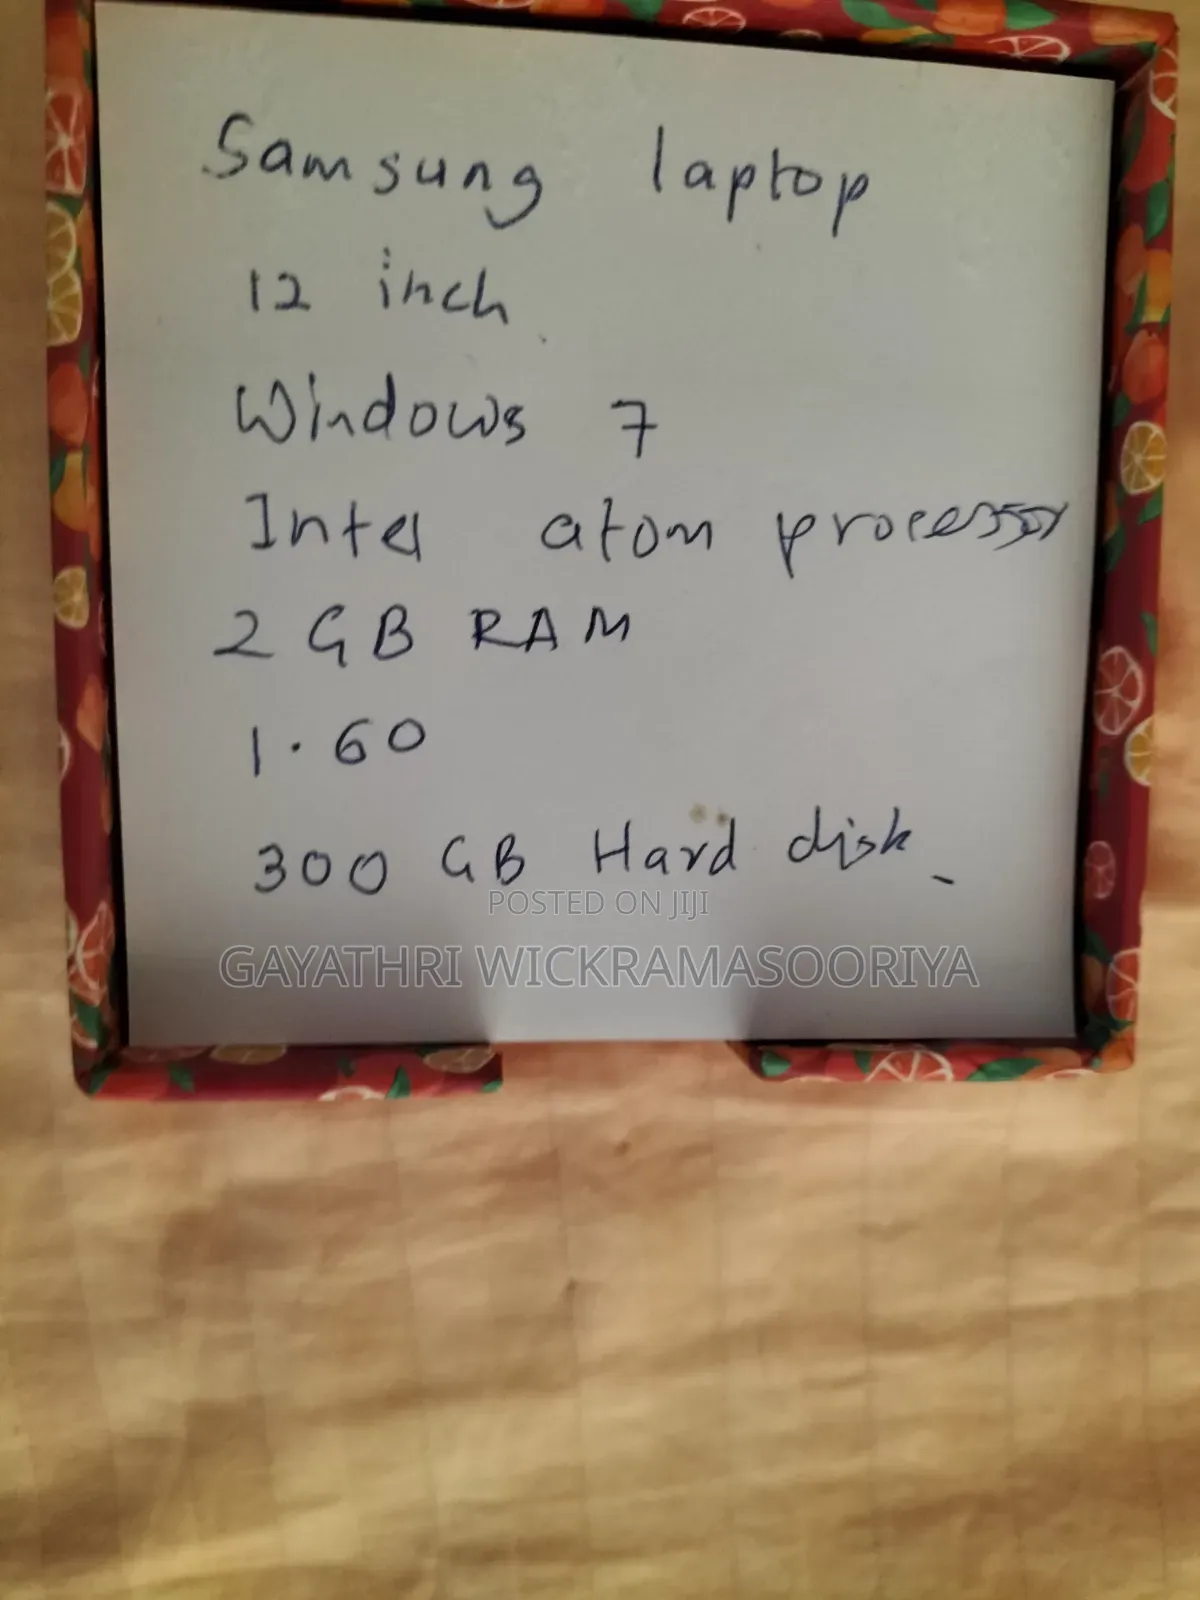 Samsung laptop
12 inch
Windows 7
Intel atom processor
2 GB RAM
1.60
300 GB Hard disk
POSTED ON JIJI
GAYATHRI WICKRAMASOORIYA